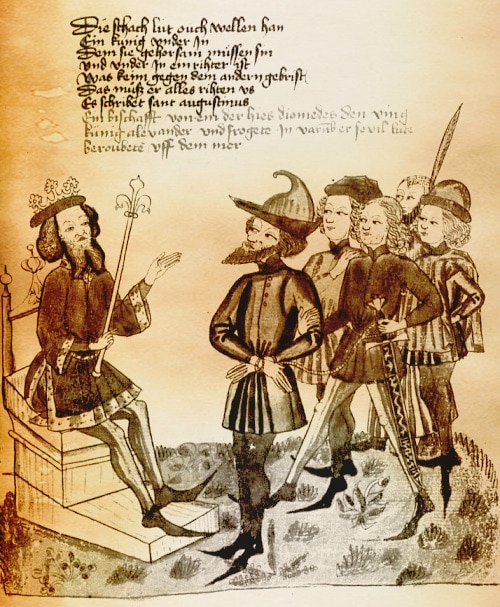 Die schach lüt ouch wellen han
Ein künig vnder In
Dem sie gehorsam müssen sin
vnd vnder In ein rihter ist
Was keim gegen dem andern gebrist
Das muß er alles rihten vs
Es schribet sant augustinus
Ein bischafft von eim der hies diomedes den ving
künig alexander vnd frogete In er so vil
beroubete vff dem mer